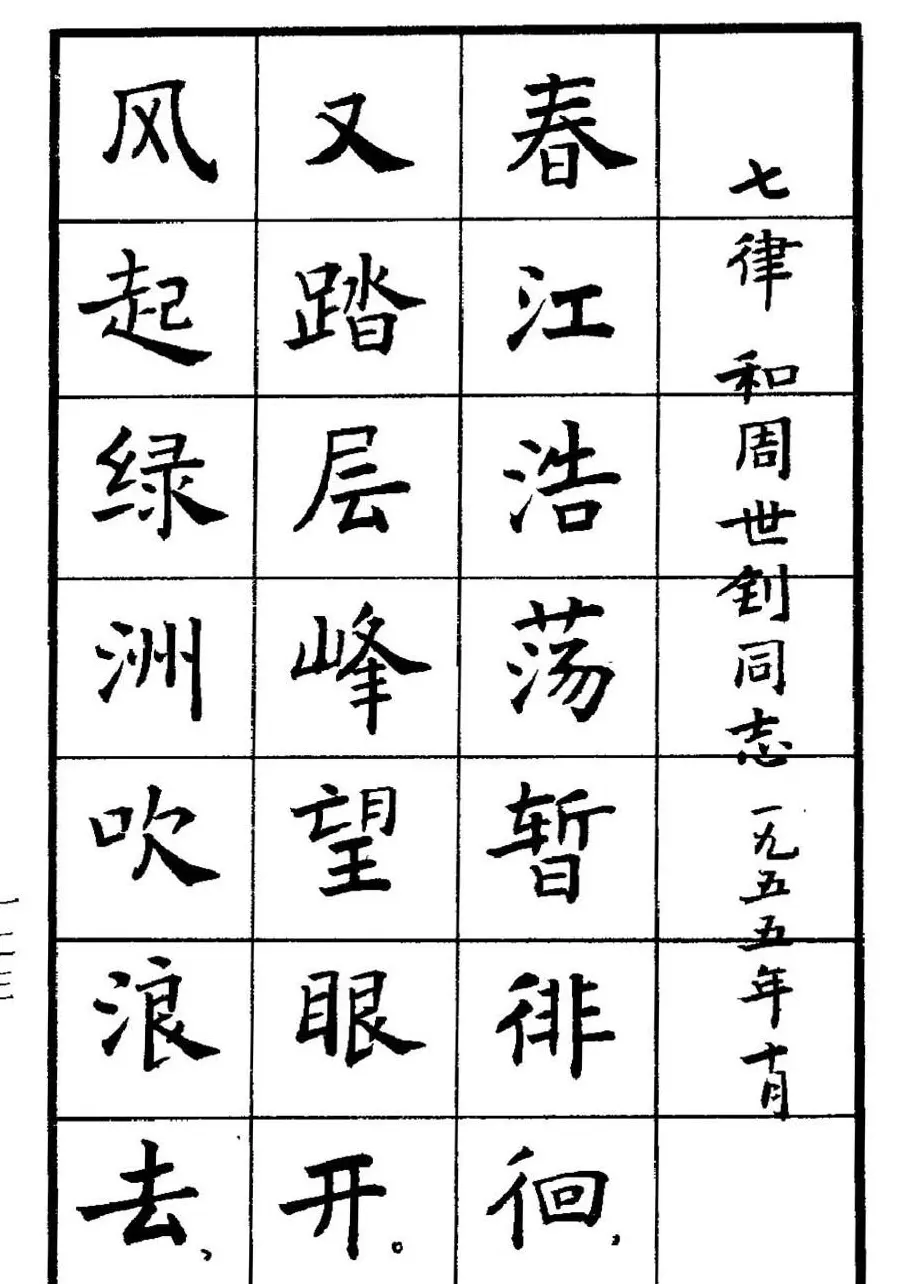 七律 和周世钊同志 一九五五年十月
春江浩荡暂徘徊，
又踏层峰望眼开。
风起绿洲吹浪去，
一二三三